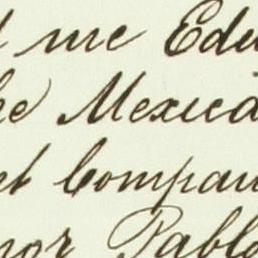 me Edu
he Mexica
et Compan
nor Pablo